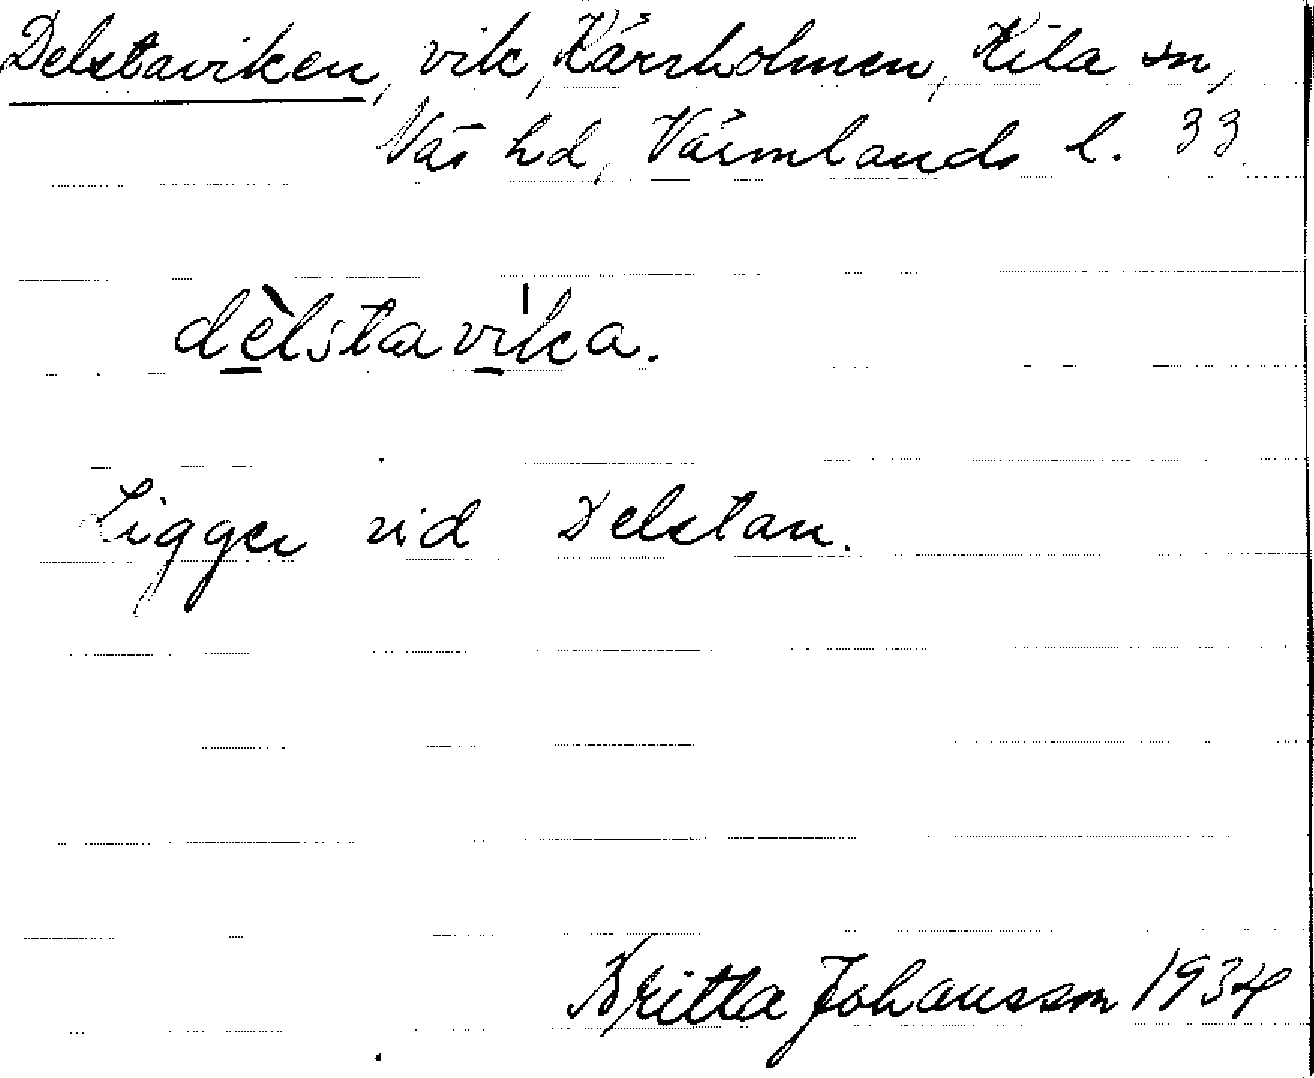 Delstaviken, vik, Kärrholmen, Kila sn,
Näs hd, Värmlands l. 33.
dèlstavi'ka.
Ligger vid Delstan.
Britta Johansson 1934